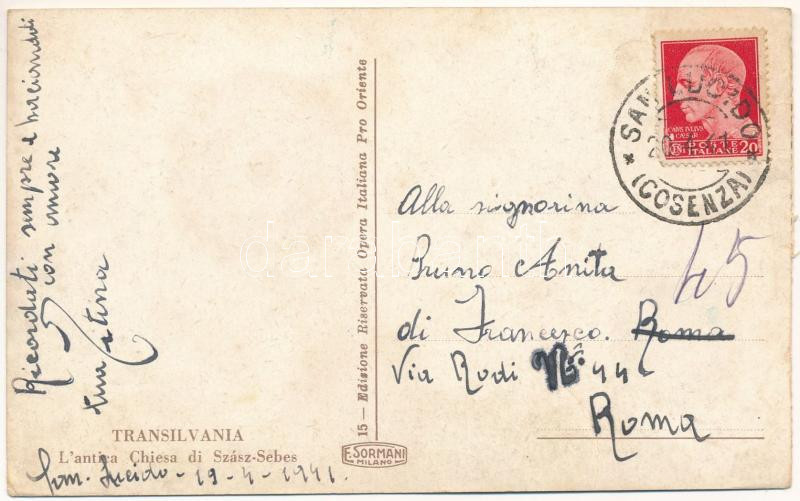 Ricordati sempre e
con amore
tua Titina
TRANSILVANIA
L'antica Chiesa di Szász-Sebes
San Lucido - 19-4-1941.
15 — Edizione Riservata Opera Italiana Pro Oriente
F. SORMANI
MILANO
SAN LUCIDO
(COSENZA)
CAIVS IVLIVS
CAESAR
POSTE
ITALIANE 20
Alla signorina
Bruno Anita
di Francesco. Roma
Via Rodi No. 44
Roma
45